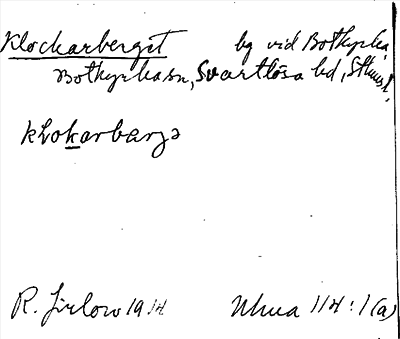 Klockarberget bg vid Botkyrka
Botkyrka sn, Svartlösa hd, Sthms l.
klokarbarjə
R. Jirlow 1914 Uhua 114:1(a)